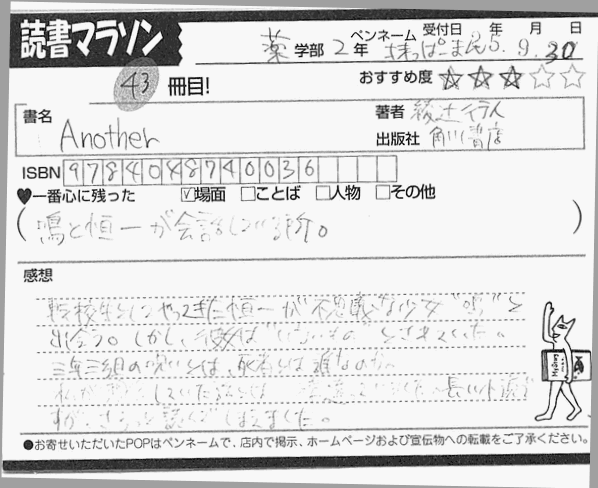 読書マラソン
薬 学部 2 年 ペンネーム 受付日 年 月 日
25. 9. 30
43 冊目!
おすすめ度 ★★★☆☆
書名 Another
著者 綾辻行人
出版社 角川書店
ISBN 9784048740036
♥一番心に残った ☑場面 □ことば □人物 □その他
(鳴と恒一が会話している所。)
感想
転校生としてやってきた恒一が不思議な少女“鳴”と
出会う。しかし、彼女は“いないもの”とされていた。
三年三組の呪いとは、死者とは誰なのか。
私が していた とは 長い小説
すが、さらっと読んでしまえました。
●お寄せいただいたPOPはペンネームで、店内で掲示、ホームページおよび宣伝物への転載をご了承ください。